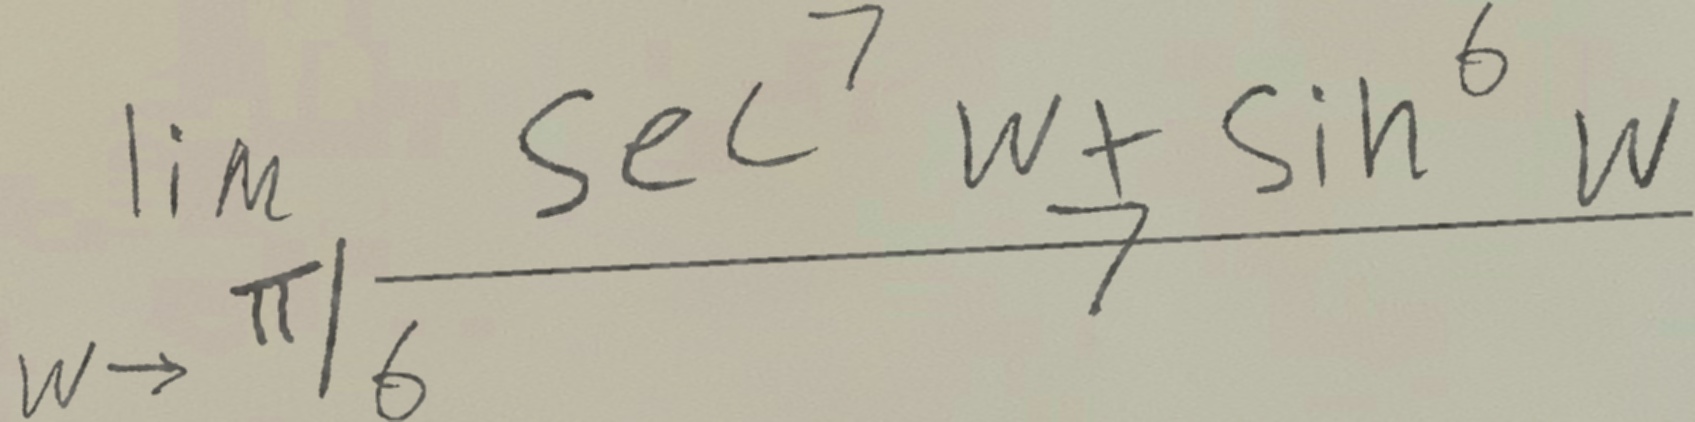 lim w→π/6 (sec^7 w + sin^6 w)/7